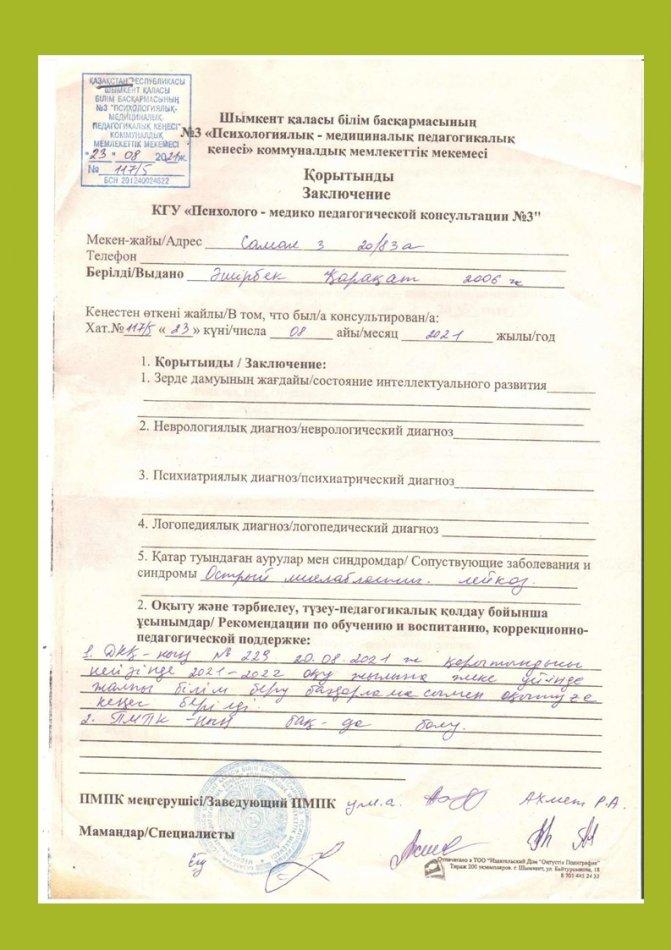 ҚАЗАҚСТАН РЕСПУБЛИКАСЫ
ШЫМКЕНТ ҚАЛАСЫ
БІЛІМ БАСҚАРМАСЫНЫҢ
№3 "ПСИХОЛОГИЯЛЫҚ-
МЕДИЦИНАЛЫҚ-
ПЕДАГОГИКАЛЫҚ КЕҢЕСІ"
КОММУНАЛДЫҚ
МЕМЛЕКЕТТІК МЕКЕМЕСІ
"23" 08 2021ж
№ 117/5
БСН 201240024622
Шымкент қаласы білім басқармасының
№3 «Психологиялық - медициналық педагогикалық
кеңесі» коммуналдық мемлекеттік мекемесі
Қорытынды
Заключение
КГУ «Психолого - медико педагогической консультации №3"
Мекен-жайы/Адрес Самал 3 20/83а
Телефон
Берілді/Выдано Әшірбек Қарақат 2006 ж
Кеңестен өткені жайлы/В том, что был/а консультирован/а:
Хат.№117/5 «23» күні/числа 08 айы/месяц 2021 жылы/год
1. Қорытынды / Заключение:
1. Зерде дамуының жағдайы/состояние интеллектуального развития
2. Неврологиялық диагноз/неврологический диагноз
3. Психиатриялық диагноз/психиатрический диагноз
4. Логопедиялық диагноз/логопедический диагноз
5. Қатар туындаған аурулар мен синдромдар/ Сопуствующие заболевания и
синдромы Острый лейкоз.
2. Оқыту және тәрбиелеу, түзеу-педагогикалық қолдау бойынша
ұсынымдар/ Рекомендации по обучению и воспитанию, коррекционно-
педагогической поддержке:
1. ДКК-ның № 229 20.08.2021 ж қорытындысы
негізінде 2021-2022 оқу жылына жеке үйінде
жалпы білім беру бағдарламасымен оқытуға
кеңес берілді.
2. ПМПК-ның бақ-да болу.
ПМПК меңгерушісі/Заведующий ПМПК у.м.а. Ахмет Р.А.
Мамандар/Специалисты
Отпечатано в ТОО "Издательский Дом "Оңтүстік Полиграфия"
Тираж 200 экземпляров. г. Шымкент, ул. Байтурсынова, 18